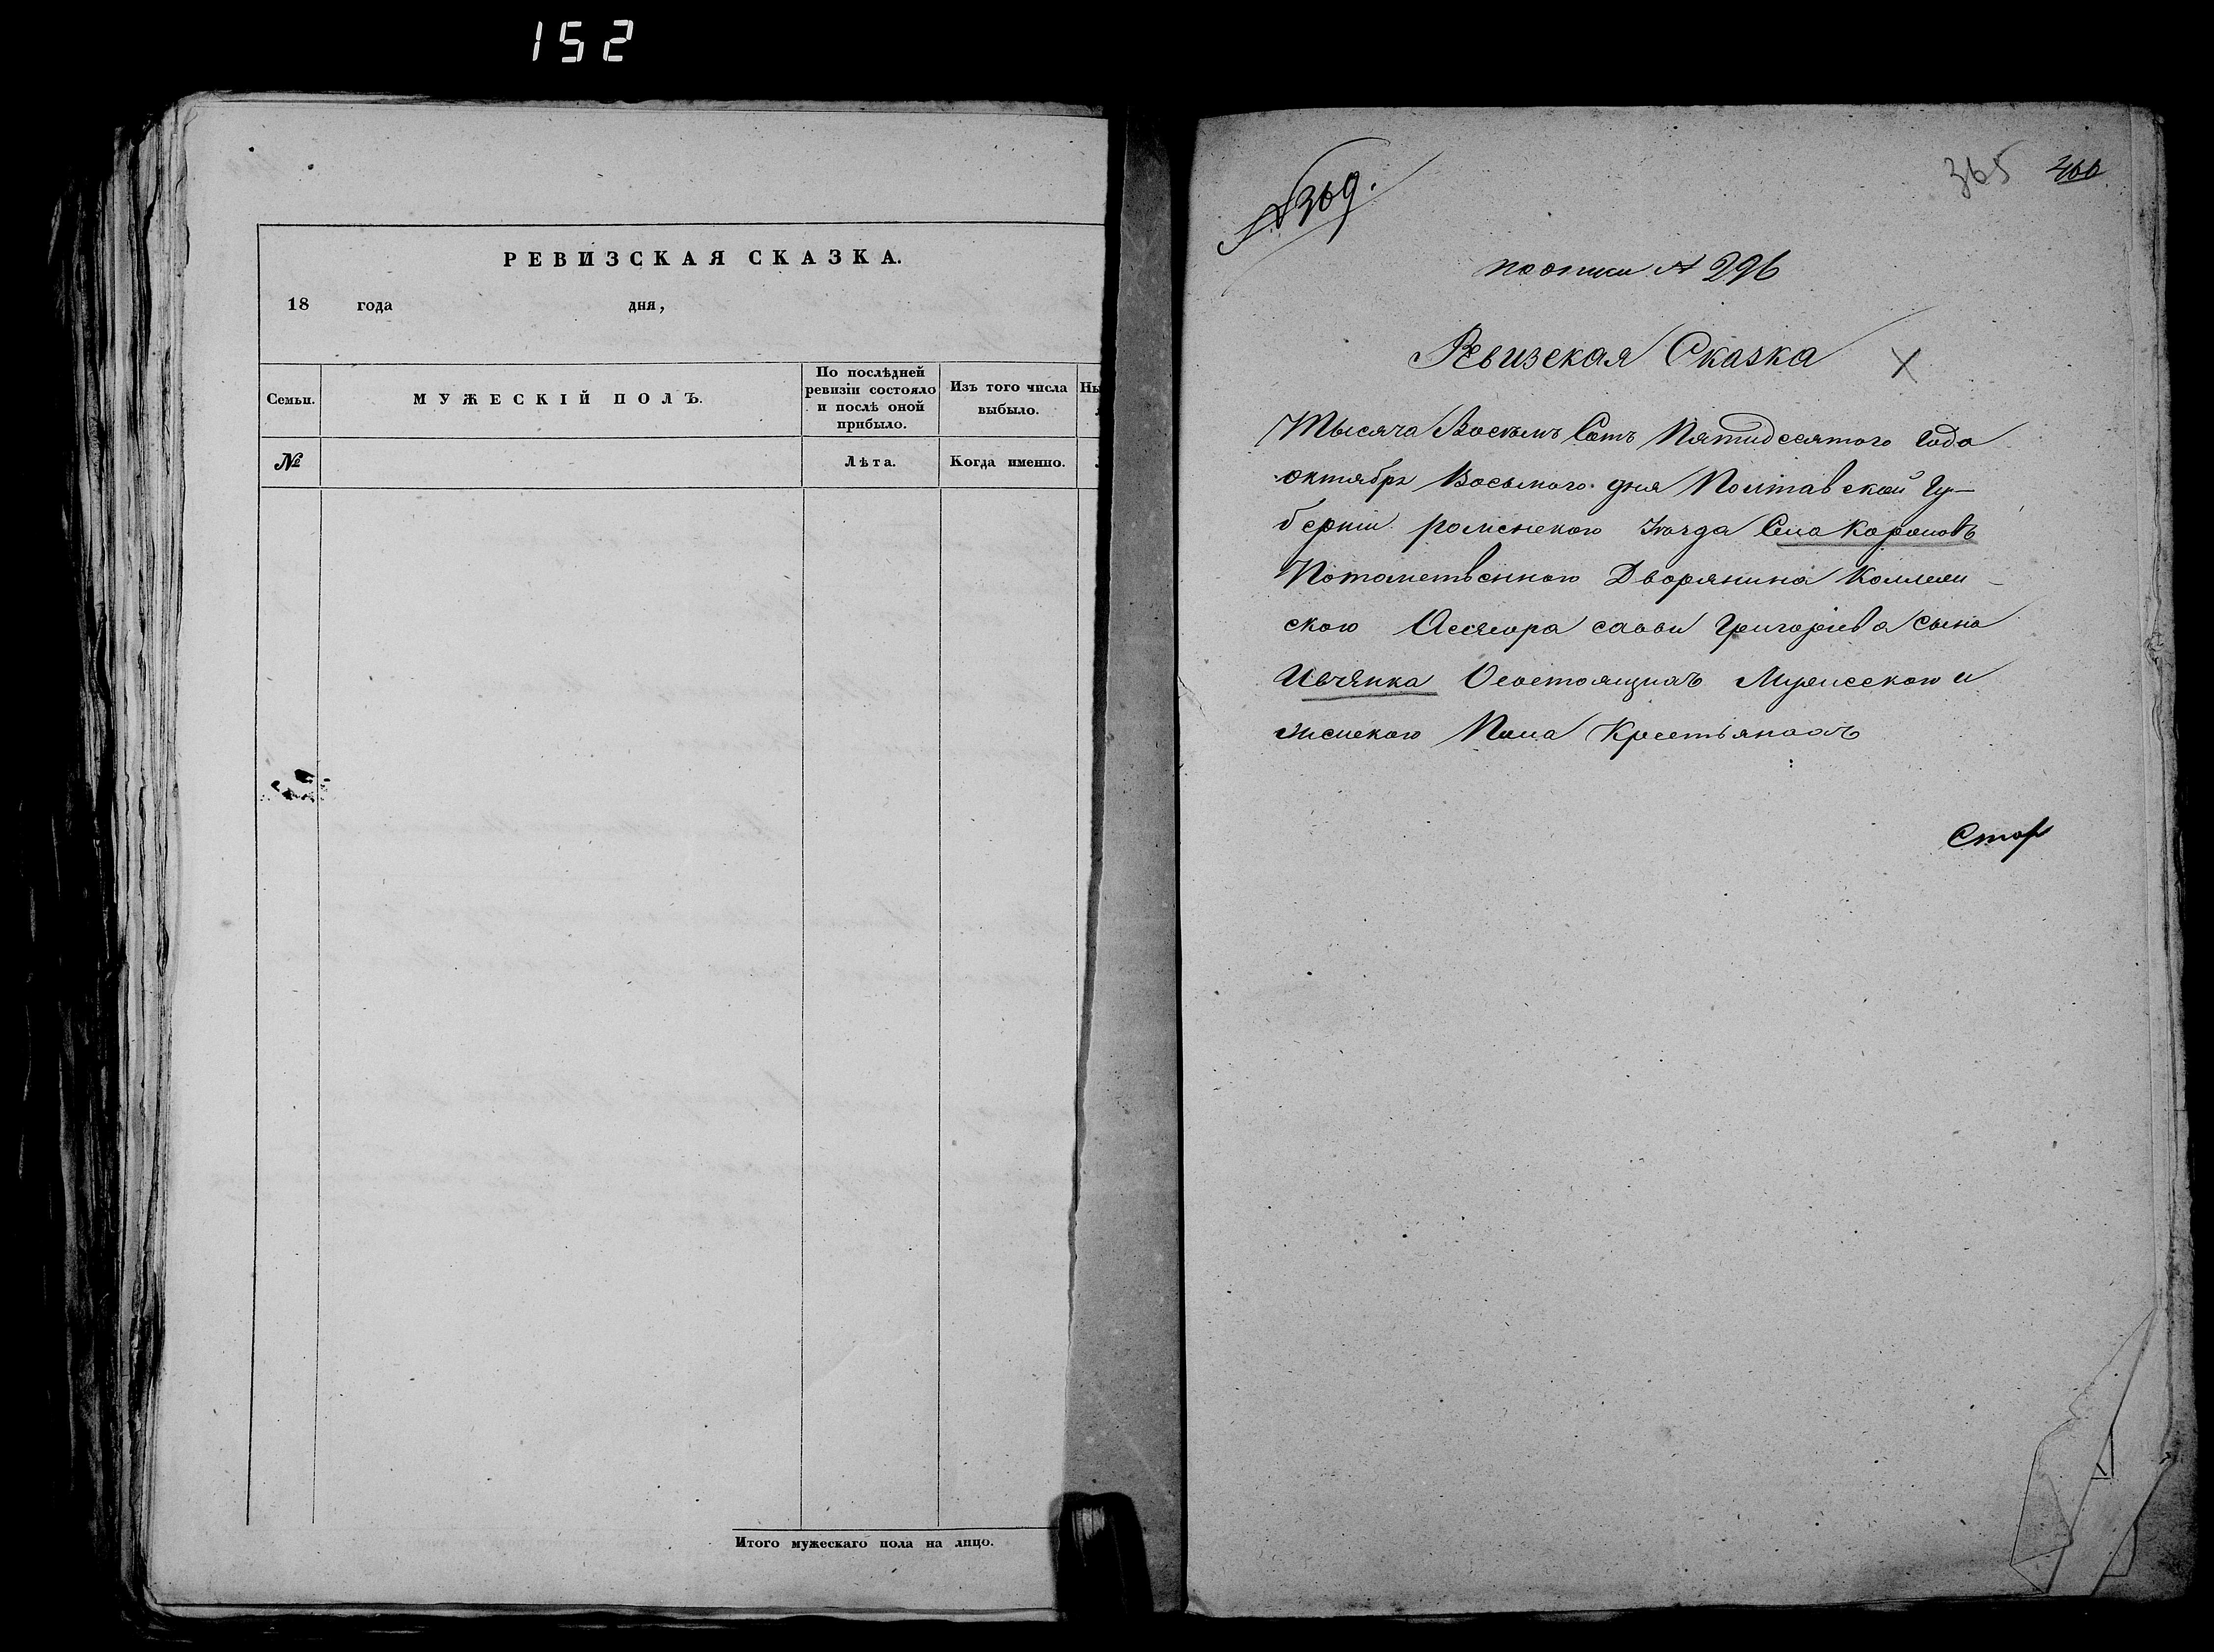 152
РЕВИЗСКАЯ СКАЗКА.
18 года дня,
Семьи.
МУЖЕСКІЙ ПОЛЪ.
По послѣдней
ревизіи состояло
и послѣ оной
прибыло.
Изъ того числа
выбыло.
Ны
№
Лѣта.
Когда именно.
Итого мужескаго пола на лицо.
№ 369.
365 466
по описи № 296
Ревизская Сказка
Тысяча Восемь Сотъ Пятидесятого года
октября Восьмого дня Полтавской Гу-
берніи роменского Уѣзда Села Коровинъ
Потомственного Дворянина Коллеж-
ского Ассесора Саввы Григорьева Сына
Ивченка О состоящихъ Мужеского и
женского Пола Крестьянахъ